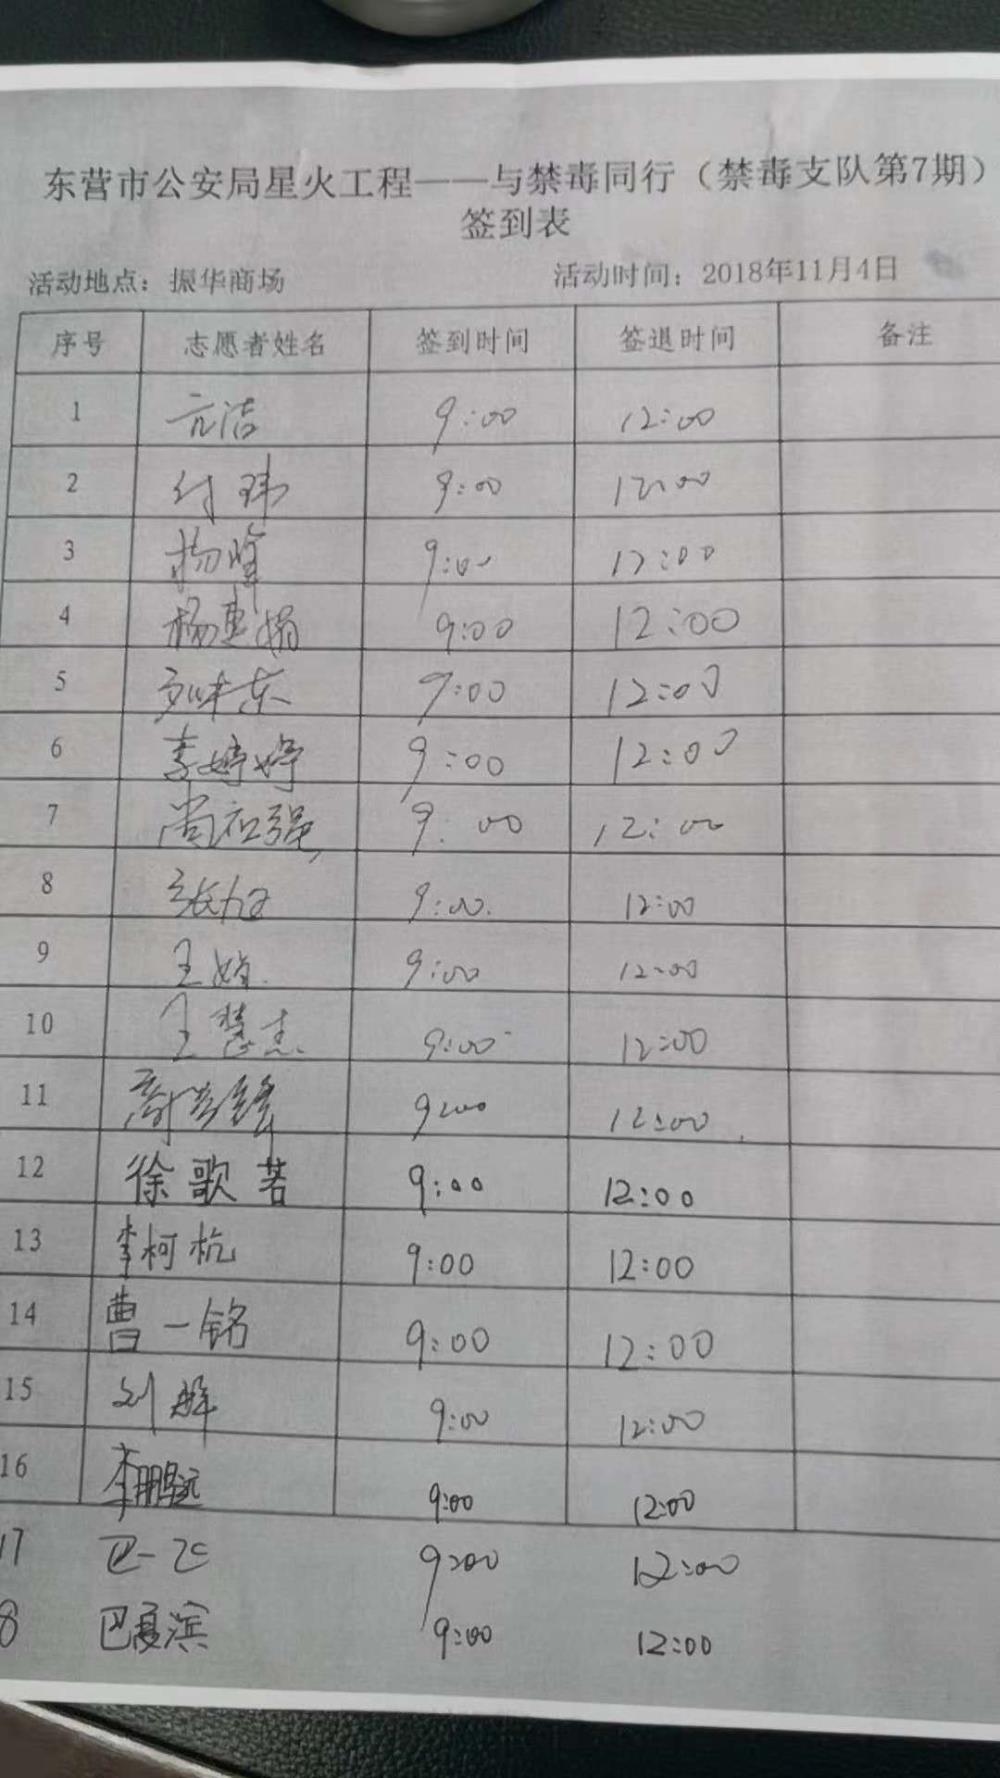 东营市公安局星火工程——与禁毒同行（禁毒支队第7期）
签到表
活动地点：振华商场 活动时间：2018年11月4日
序号 志愿者姓名 签到时间 签退时间 备注
1 亓洁 9:00 12:00
2 付玮 9:00 12:00
3 杨峰 9:00 12:00
4 杨惠娟 9:00 12:00
5 9:00 12:00
6 李婷婷 9:00 12:00
7 9:00 12:00
8 9:00 12:00
9 王娟 9:00 12:00
10 王慧杰 9:00 12:00
11 9:00 12:00
12 徐歌若 9:00 12:00
13 李柯杭 9:00 12:00
14 曹一铭 9:00 12:00
15 9:00 12:00
16 李鹏远 9:00 12:00
17 巴一飞 9:00 12:00
8 巴夏滨 9:00 12:00